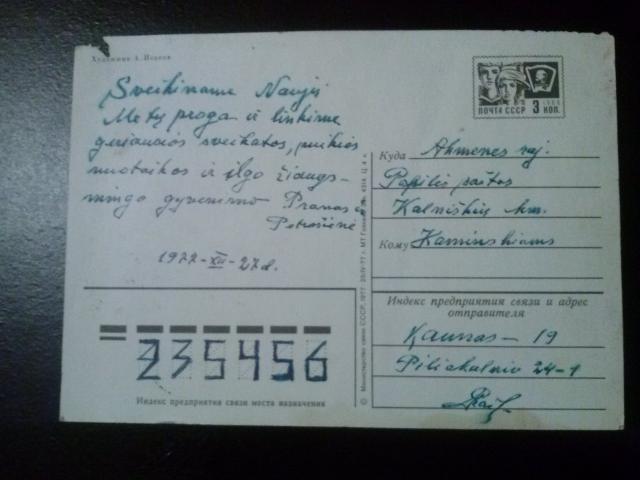 Художник А. Исаков
Sveikiname Naujų
Metų proga ir linkime
geriausios sveikatos, puikios
nuotaikos ir ilgo džiaugs-
mingo gyvenimo Pranas ir
Petronėlė
1977-XII-27 d.
ПОЧТА СССР 3 КОП.
Куда Akmenės raj.
Papilės paštas
Kalniškių km.
Кому Kaminskiams
Индекс предприятия связи и адрес
отправителя
Kaunas – 19
Piliakalnio 24-1
235456
Индекс предприятия связи места назначения
© Министерство связи СССР, 1977